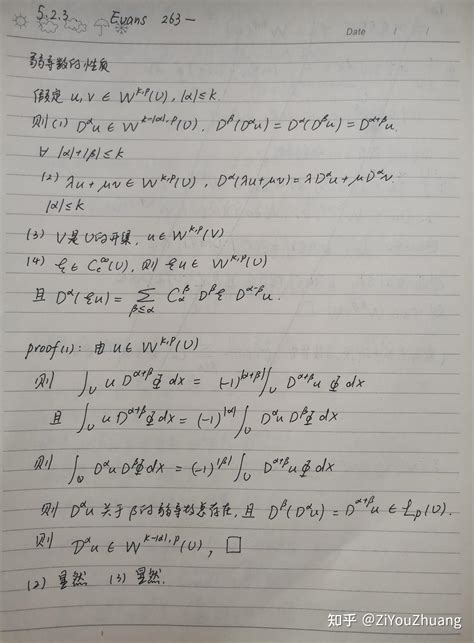 5.2.3 Evans 263-
Date / /
弱导数的性质
假定 u, v ∈ W^{k,p}(U), |α|≤k
则(1) D^α u ∈ W^{k-|α|,p}(U). D^β(D^α u) = D^α(D^β u) = D^{α+β} u.
∀ |α|+|β|≤k
(2) λu+μv ∈ W^{k,p}(U), D^α(λu+μv) = λD^α u + μD^α v.
|α|≤k
(3) V是U的开集, u∈W^{k,p}(V)
(4) ξ ∈ C_c^∞(U), 则 ξu ∈ W^{k,p}(U)
且 D^α(ξu) = ∑_{β≤α} C_α^β D^β ξ D^{α-β} u.
proof(1): 由 u∈W^{k,p}(U)
则 ∫_U u D^{α+β} Φ dx = (-1)^{|α+β|} ∫_U D^{α+β} u Φ dx
且 ∫_U u D^{α+β} Φ dx = (-1)^{|α|} ∫_U D^α u D^β Φ dx
则 ∫_U D^α u D^β Φ dx = (-1)^{|β|} ∫_U D^{α+β} u Φ dx
则 D^α u 关于β的弱导数存在, 且 D^β(D^α u) = D^{α+β} u ∈ L_p(U).
则 D^α u ∈ W^{k-|α|,p}(U), □
(2) 显然 (3) 显然.
知乎 @ZiYouZhuang